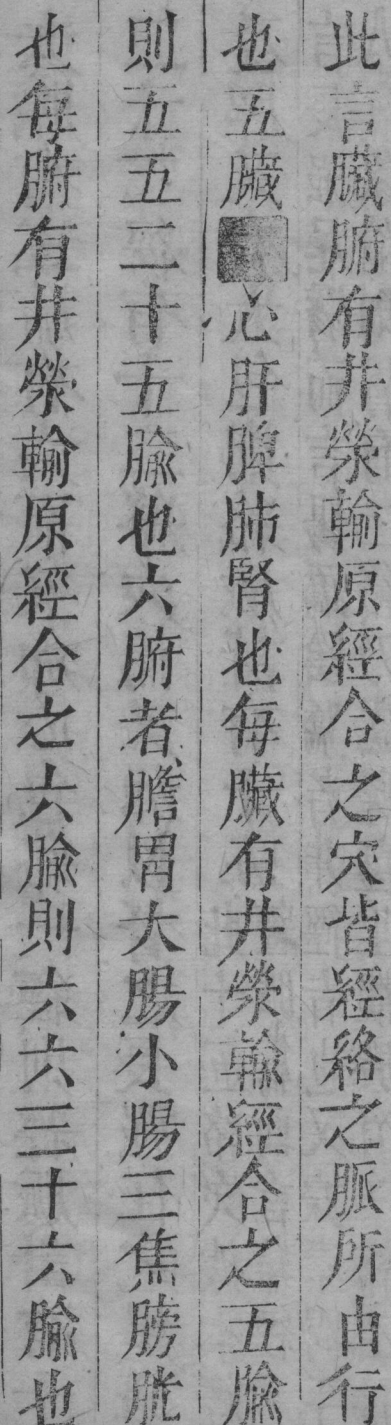 此言臟腑有井滎輸原經合之穴皆經絡之脈所由行
也五臟心肝脾肺腎也每臟有井滎輸經合之五腧
則五五二十五腧也六腑者膽胃大腸小腸三焦膀胱
也每腑有井滎輸原經合之六腧則六六三十六腧也